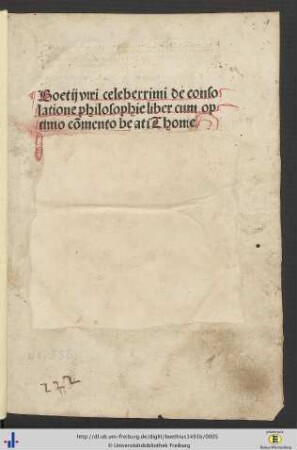 Boetij viri celeberrimi de conso
latione philosophie liber cum op-
timo cōmento be ati Thome
222
http://dl.ub.uni-freiburg.de/diglit/boethius1491b/0005
© Universitätsbibliothek Freiburg